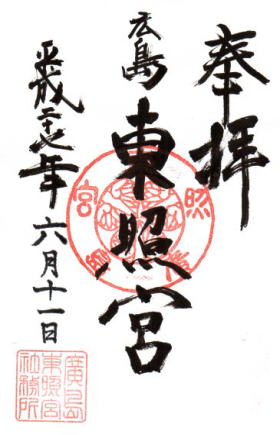 奉拝
広島
東照宮
平成二十七年六月十一日
廣島
東照宮
社務所